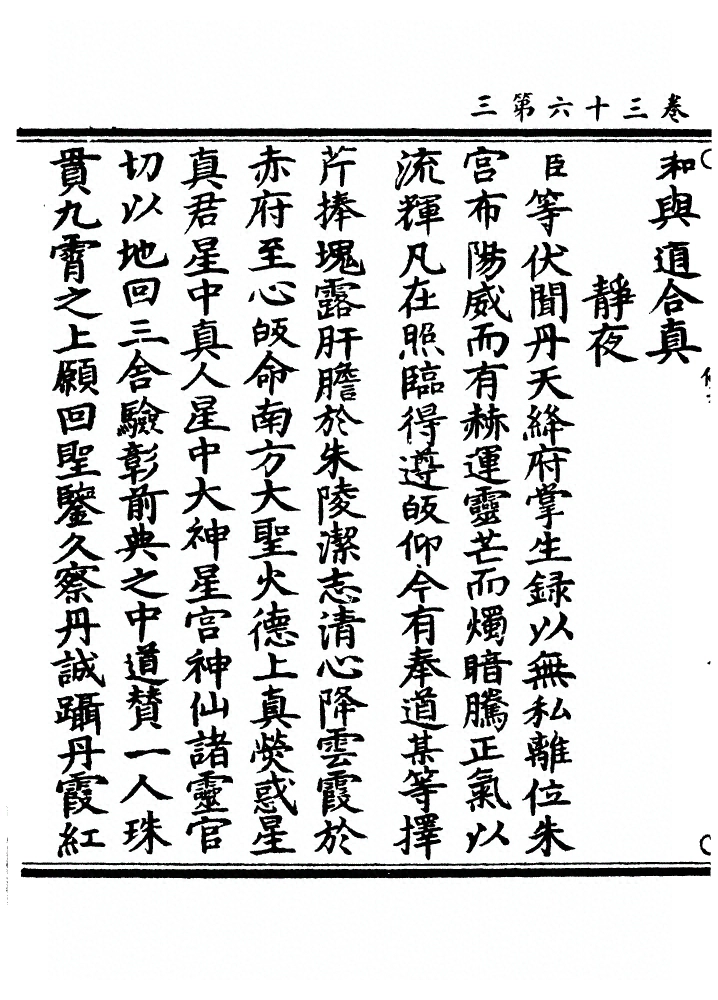 三第六十三卷
和與道合真
靜夜
臣等伏聞丹天絳府掌生録以無私離位朱
宮布陽威而有赫運靈芒而燭暗騰正氣以
流輝凡在照臨得遵皈仰今有奉道某等擇
芹捧塊露肝膽於朱陵潔志清心降雲霞於
赤府至心皈命南方大聖火德上真熒惑星
真君星中真人星中大神星宮神仙諸靈官
切以地回三舍驗彰前典之中道賛一人珠
貫九霄之上願回聖鑒久察丹誠躡丹霞紅